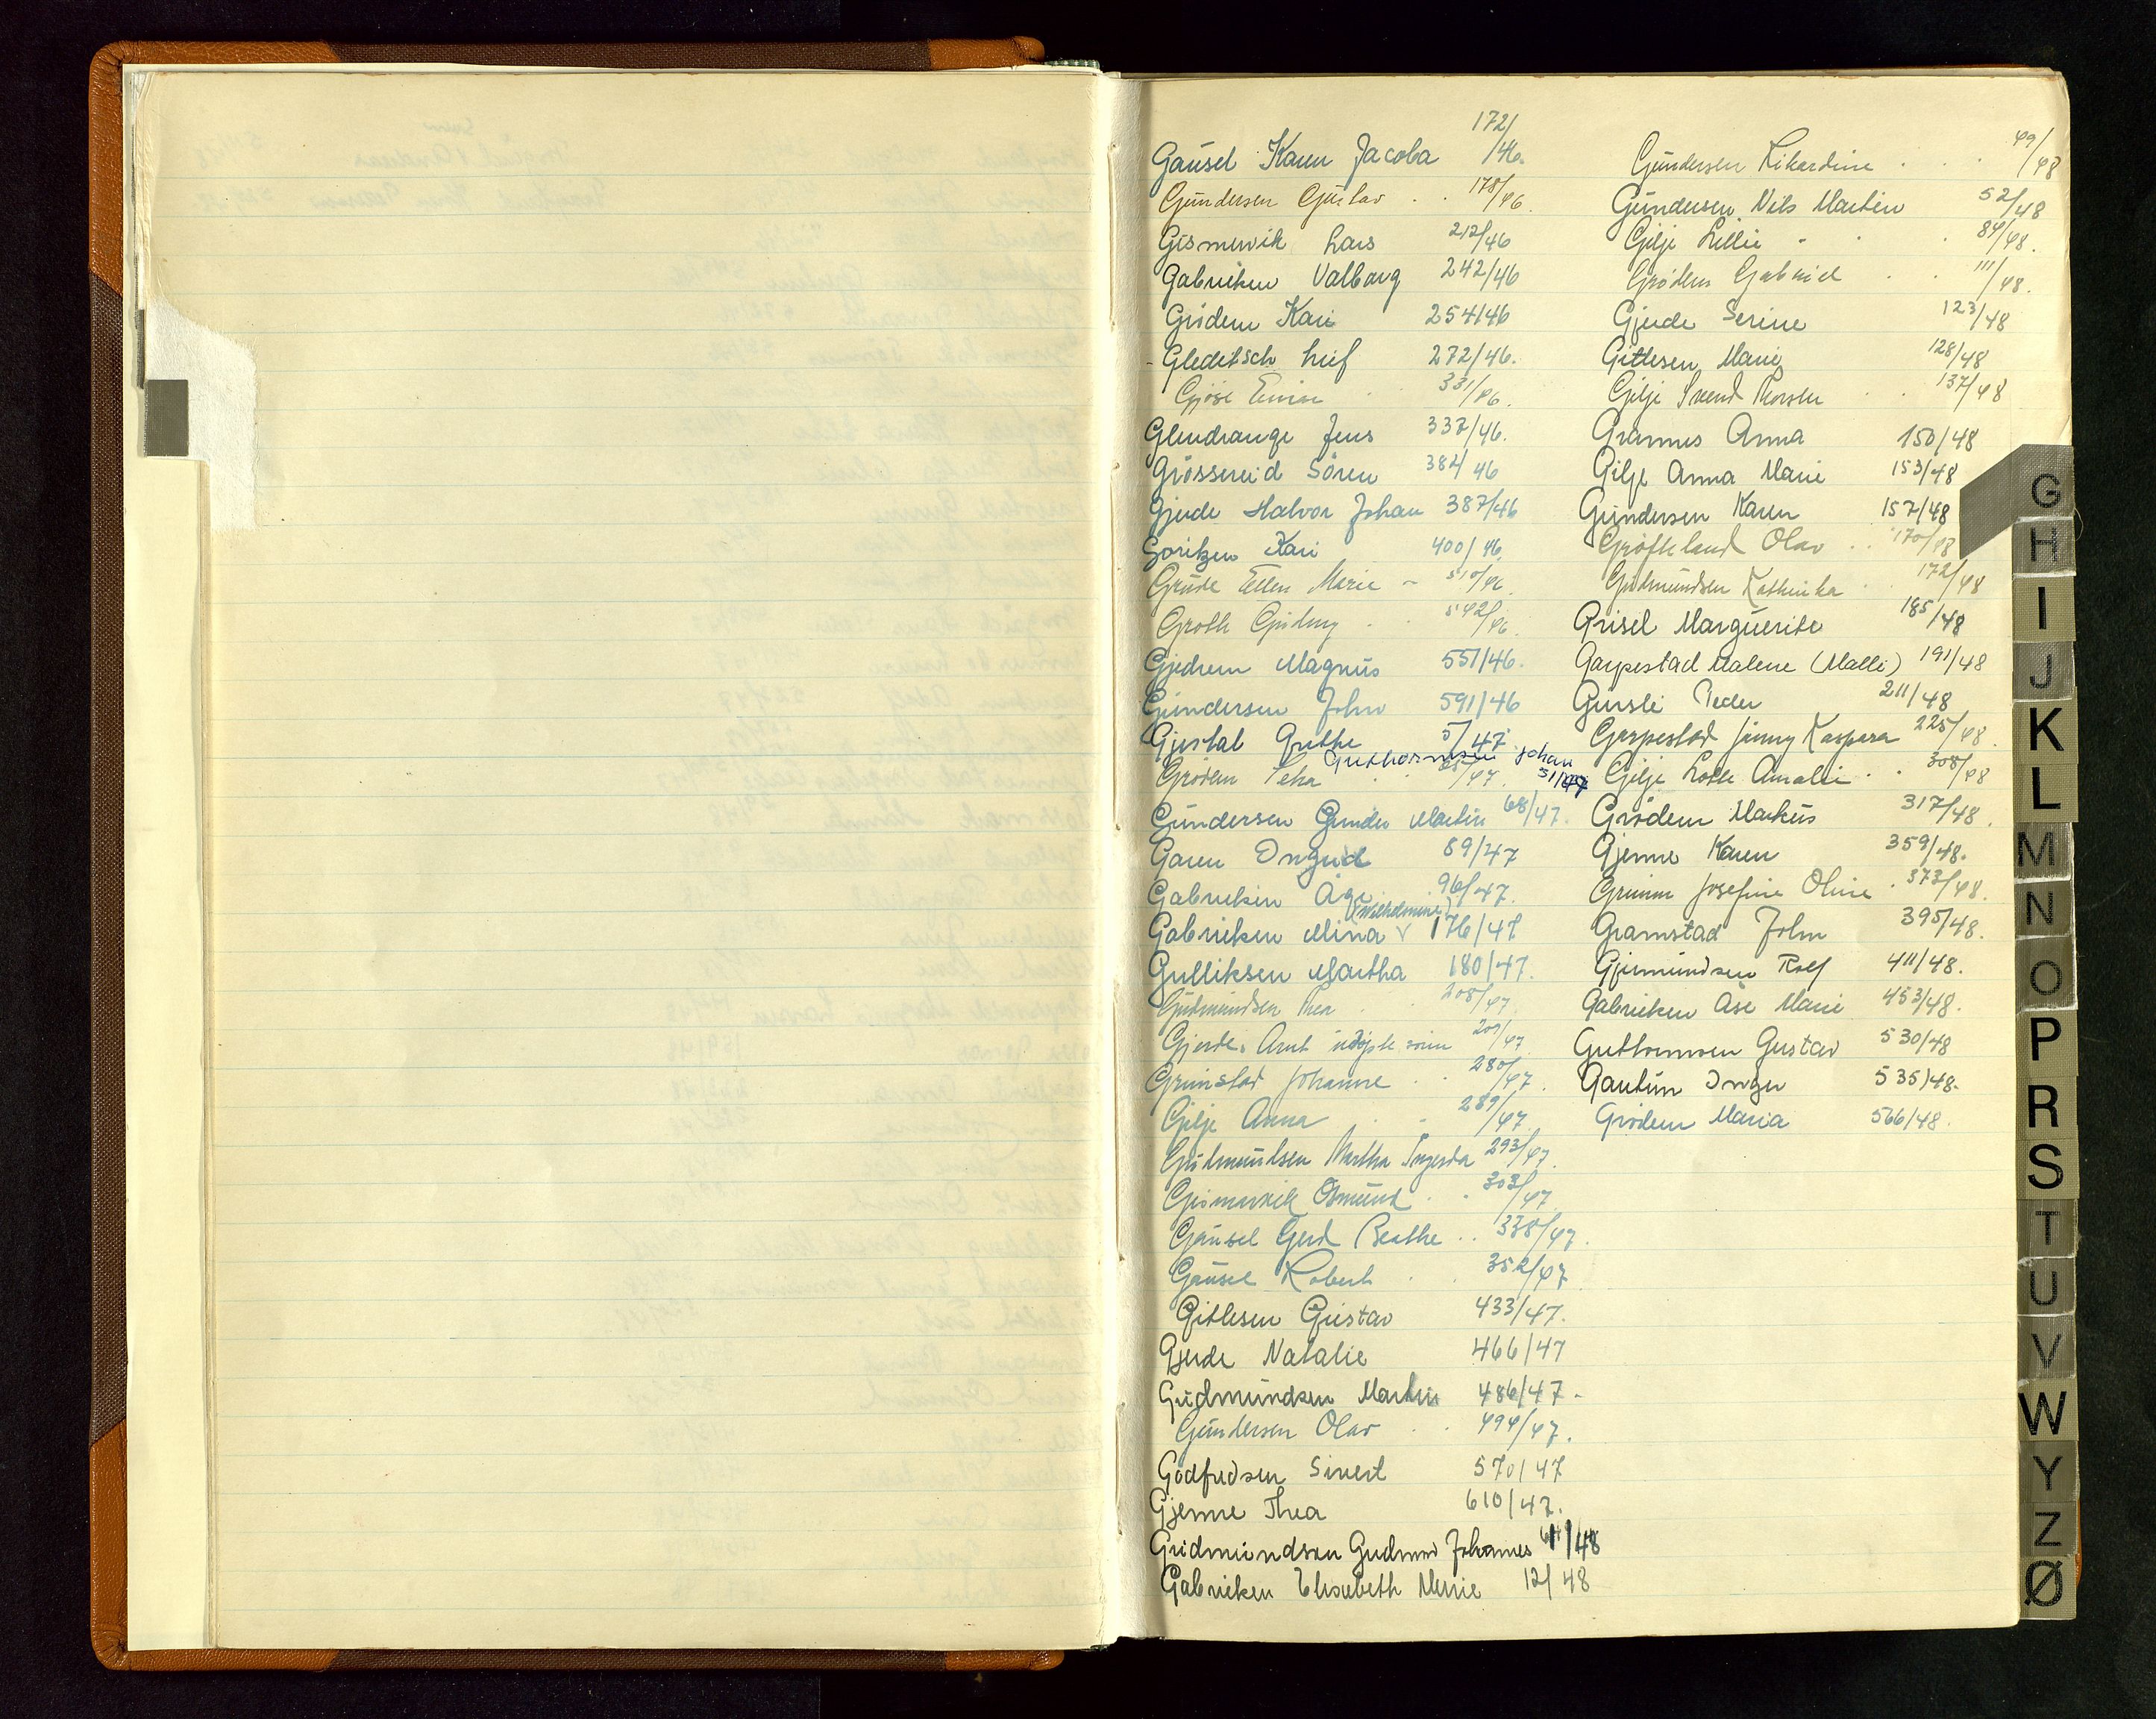 Gausel Karen Jacoba 172/46.
Gundersen Gustav . . 178/46.
Gismervik Lars 212/46
Gabrielsen Valborg 242/46
Grödem Kari 254/46
Gleditsch Leif 272/46.
Gjöse Einar . 331/46.
Glendrange Jens 337/46.
Grössereid Sören 382/46
Gjerde Halvor Johan 387/46
Goritzen Kari 400/46.
Grude Ellen Marie - 510/46.
Groth Gudmy . . 542/46.
Gjedrem Magnus 551/46.
Gundersen John 591/46
Gjestal Grethe 5/47.
Guthormsen Johan 51/47
Grödem Peka . . /47.
Gundersen Gunder Martin 68/47.
Garen Ingrid 89/47
Gabrielsen Åge . 96/47.
Gabrielsen Mina V (Wilhelmine) 176/47
Gulliksen Martha 180/47.
Gudmundsen Thea . 208/47.
Gjerde, Arnt udöpte sönn 209/47
Grimstad Johanne . . 280/47.
Gilje Anna . . 289/47.
Gudmundsen Martha Ingerda 293/47.
Gismervik Osmund . . 303/47.
Gausel Gerd Beathe . . 338/47.
Gausel Robert . . 352/47
Gitlesen Gustav 433/47.
Gjerde Natalie 466/47
Gudmundsen Martin 486/47-
Gundersen Olav . . 494/47.
Godfredsen Sivert 570/47
Gjerme Thea 610/47.
Gudmundsen Gudmund Johannes 11/48
Gabrielsen Elisabeth Marie 12/48
Gundersen Rikardine . . . 49/48
Gundersen Nils Martin 52/48
Gilje Lillie - . . 84/48.
Grödem Gabriel . . 111/48.
Gjerde Serine 123/48
Gitlesen Marie 128/48
Gilje Svend Thorsen . . 137/48
Grannes Anna 150/48
Gilje Anna Marie 153/48
Gundersen Karen 157/48
Gröfteland Olav . . 170/48
Gudmundsen Kathinka . 172/48
Grisel Marguerite 185/48
Garpestad Malene (Malli) 191/48
Gursli Peder 211/48
Garpestad Jenny Kaspara 225/48.
Gilje Lotte Amalie . . 308/48
Grödem Markus 317/48.
Gjerme Karen 359/48.
Grimm Josefine Oline . 373/48.
Gramstad John 395/48.
Gjermundsen Rolf 411/48.
Gabrielsen Åse Marie 453/48.
Guthormsen Gustav 530/48
Gautun Inger 535/48.
Grödem Maria 566/48.
G
H
I
J
K
L
M
N
O
P
R
S
T
U
V
W
Y
Z
Ø